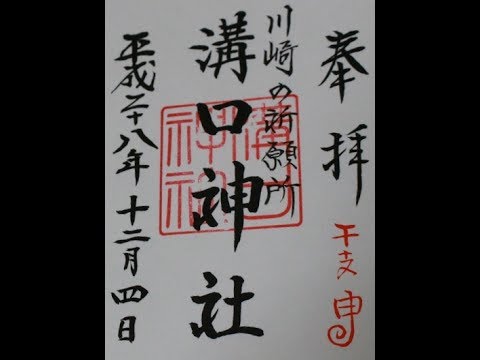 奉拝
干支 申
川崎の祈願所
溝口神社
平成二十八年十二月四日
溝口
神社